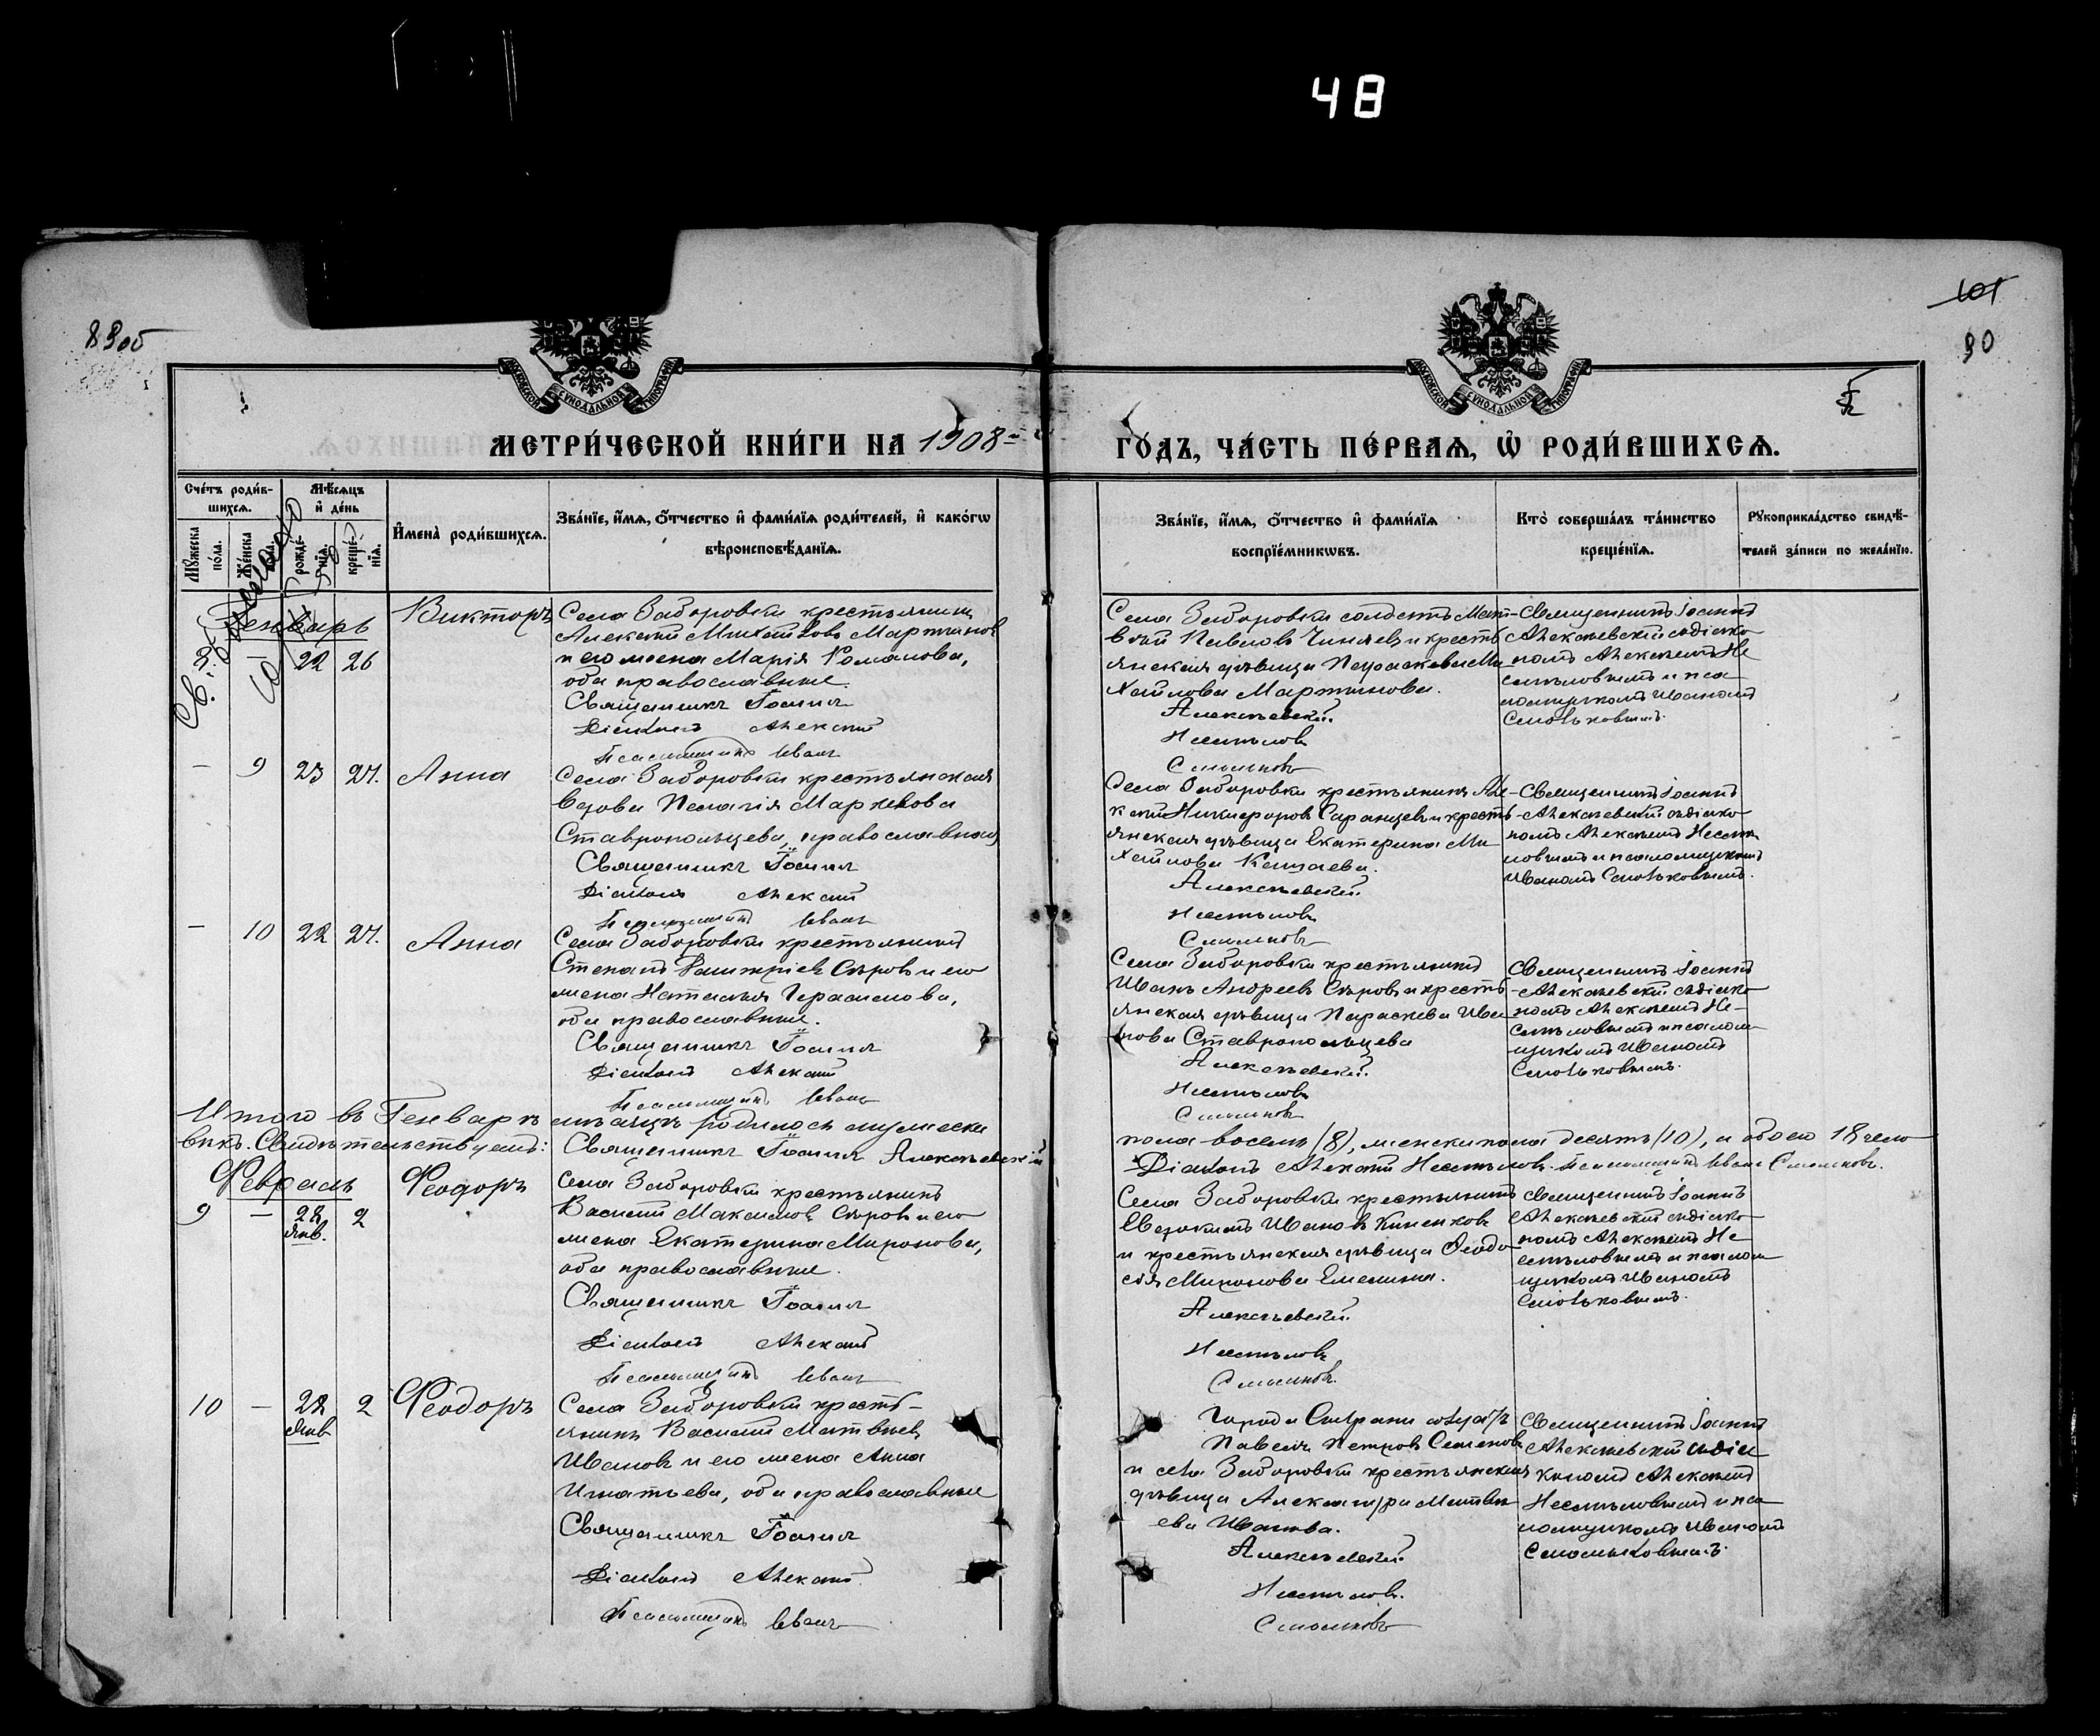 48
89об
101
90
МОСКОВСКОЙ СѴНОДАЛЬНОЙ ТИПОГРАФІИ
МОСКОВСКОЙ СѴНОДАЛЬНОЙ ТИПОГРАФІИ
МЕТРИ́ЧЕСКОЙ КНИ́ГИ НА 1908-й ГО́ДЪ, ЧА́СТЬ ПЕ́РВАѦ, Ѡ҆ РОДИ́ВШИХСѦ.
Сче́тъ роди́в-
шихсѧ.
Мѣ́сѧцъ
и҆ де́нь
Мꙋ́жеска
по́ла.
Же́нска
по́ла.
рожде́-
нїѧ.
креще́-
нїѧ.
И҆мена̀ роди́вшихсѧ.
Зва́нїе, и҆́мѧ, ѻ҆́тчество и҆ фами́лїѧ роди́телей, и҆ како́гѡ
вѣроисповѣ́данїѧ.
Зва́нїе, и҆́мѧ, ѻ҆́тчество и҆ фами́лїѧ
воспрїе́мникѡвъ.
Кто̀ соверша́лъ та́инство
креще́нїѧ.
Рꙋкоприкла́дство свидѣ́-
телей за́писи по жела́нїю.
Генварь
22 26
Викторъ
Села Заборовки крестьянинъ
Алексѣй Михайловъ Мартыновъ
и его жена Марія Романова,
оба православные.
Священникъ Іоаннъ
Діаконъ Алексѣй
Псаломщикъ Иванъ
Села Заборовки солдатъ Мат-
вѣй Павловъ Чиняевъ и кресть-
янская дѣвица Параскева Ми-
хайлова Мартынова.
Алексѣевскій.
Несмѣловъ
Смольковъ
Священникъ Іоаннъ
Алексѣевскій съ діако-
номъ Алексѣемъ Не-
смѣловымъ и пса-
ломщикомъ Иваномъ
Смольковымъ.
— 9 23 27.
Анна
Села Заборовки крестьянская
вдова Пелагія Маркелова
Ставропольцева, православная
Священникъ Іоаннъ
Діаконъ Алексѣй
Псаломщикъ Иванъ
Села Заборовки крестьянинъ Але-
ксѣй Никифоровъ Саранцевъ и кресть-
янская дѣвица Екатерина Ми-
хайлова
Алексѣевскій.
Несмѣловъ
Смольковъ
Священникъ Іоаннъ
Алексѣевскій съ діако-
номъ Алексѣемъ Несмѣ-
ловымъ и псаломщикомъ
Иваномъ Смольковымъ.
— 10 22 27.
Анна
Села Заборовки крестьянинъ
Степанъ Димитріевъ Сѣровъ и его
жена Наталья Герасимова,
оба православные.
Священникъ Іоаннъ
Діаконъ Алексѣй
Псаломщикъ Иванъ
Села Заборовки крестьянинъ
Иванъ Андреевъ Сѣровъ и кресть-
янская дѣвица Параскева Ива-
нова Ставропольцева
Алексѣевскій.
Несмѣловъ
Смольковъ
Священникъ Іоаннъ
Алексѣевскій съ діако-
номъ Алексѣемъ Не-
смѣловымъ и псалом-
щикомъ Иваномъ
Смольковымъ.
Итого въ Генварѣ мѣсяцѣ родилось мужеска пола восемь (8), женска пола десять (10), и обоего 18 чело-
вѣкъ. Свидѣтельствуемъ: Священникъ Іоаннъ Алексѣевскій Діаконъ Алексѣй Несмѣловъ. Псаломщикъ Иванъ Смольковъ.
Февраль
9 — 28 2
Янв.
Феодоръ
Села Заборовки крестьянинъ
Василій Максимовъ Сѣровъ и его
жена Екатерина Миронова,
оба православные.
Священникъ Іоаннъ
Діаконъ Алексѣй
Псаломщикъ Иванъ
Села Заборовки крестьянинъ
Евдокимъ Ивановъ
и крестьянская дѣвица Феодо-
сія Миронова Емелина.
Алексѣевскій.
Несмѣловъ
Смольковъ.
Священникъ Іоаннъ
Алексѣевскій съ діако-
номъ Алексѣемъ Не-
смѣловымъ и псалом-
щикомъ Иваномъ
Смольковымъ.
10 — 28 2
Янв
Феодоръ
Села Заборовки кресть-
янинъ Василій Матвѣевъ
Ивановъ и его жена Анна
Игнатьева, оба православные
Священникъ Іоаннъ
Діаконъ Алексѣй.
Псаломщикъ Иванъ
Города Сызрани
Павелъ Петровъ Семеновъ
и села Заборовки крестьянская
дѣвица Александра Матвѣ-
ева Иванова.
Алексѣевскій.
Несмѣловъ.
Смольковъ
Священникъ Іоаннъ
Алексѣевскій съ діа-
кономъ Алексѣемъ
Несмѣловымъ и пса-
ломщикомъ Иваномъ
Смольковымъ.